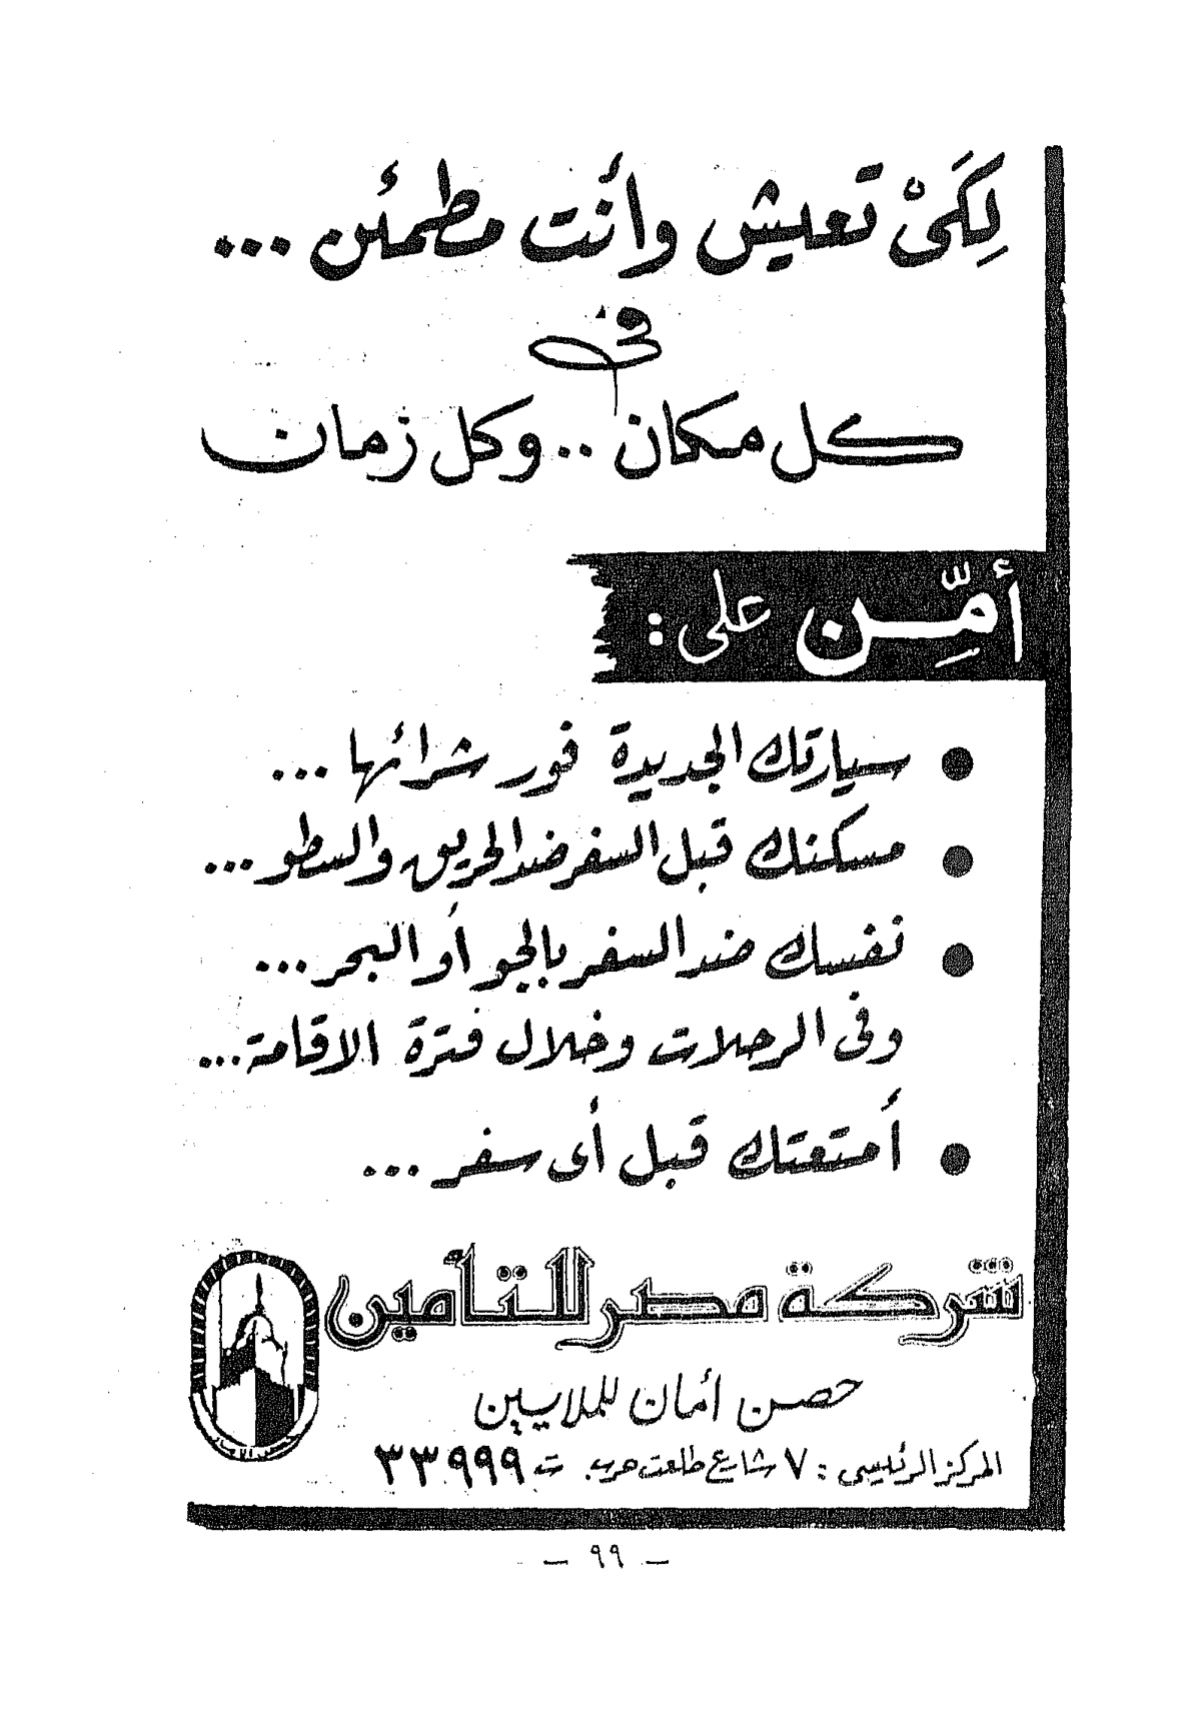 لِكَىْ تعيش وأنت مطمئن ...
فى
كل مكان .. وكل زمان
أمِّن على :
● سيارتك الجديدة فور شرائها ...
● مسكنك قبل السفر ضد الحريق والسطو ...
● نفسك ضد السفر بالجو أو البحر ...
وفى الرحلات وخلال فترة الاقامة ...
● أمتعتك قبل أى سفر ...
شركة مصر للتأمين
حصن أمان للملايين
المركز الرئيسى : ٧ شارع طلعت حرب . ت ٣٣٩٩٩
— ٩٩ —